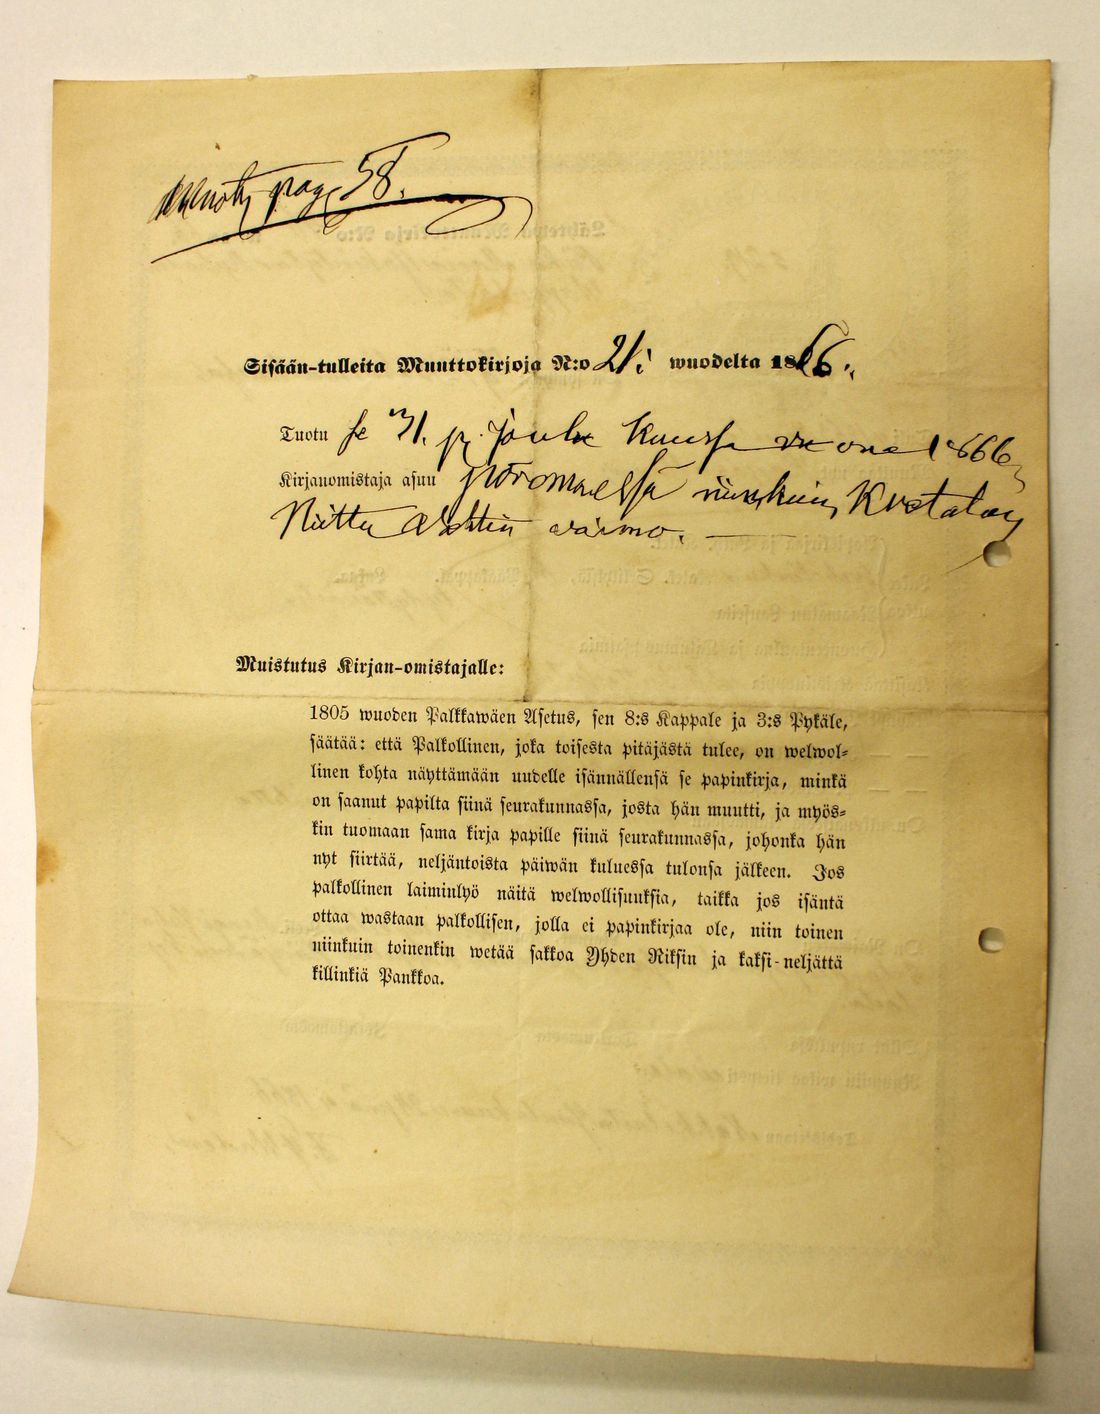 pag. 58.
Sisään-tulleita Muuttokirjoja N:o 21; wuodelta 1866.
Tuotu se 31. p. joulu kuussa 1866
Kirjanomistaja asuu niinkuin Kustaa
Niittu Ahtin waimo.
Muistutus Kirjan-omistajalle:
1805 wuoden Palkkawäen Asetus, sen 8:s Kappale ja 3:s Pykäle,
säätää: että Palkollinen, joka toisesta pitäjästä tulee, on welwol-
linen kohta näyttämään uudelle isännällensä se papinkirja, minkä
on saanut papilta siinä seurakunnassa, josta hän muutti, ja myös-
kin tuomaan sama kirja papille siinä seurakunnassa, johonka hän
nyt siirtää, neljäntoista päiwän kuluessa tulonsa jälkeen. Jos
palkollinen laiminlyö näitä welwollisuuksia, taikka jos isäntä
ottaa wastaan palkollisen, jolla ei papinkirjaa ole, niin toinen
niinkuin toinenkin wetää sakkoa Yhden Riksin ja kaksi-neljättä
killinkiä Pankkoa.